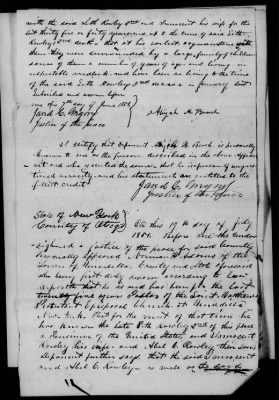 with the said Seth Rowley 2nd and Innocent his wife for the
last thirty five or forty years and up to the time of said Seth
Rowleys 2nd death that at his earliest acquaintance with
them they were surrounded by a large family of children
some of them a number of years of age and living in
respectable wedlock and have been so living to the time
of the said Seth Rowley 2nd
Subscribed and sworn before
me this 7th day of June 1882
David C.
Justice of the peace
Abijah H. Beach
I certify that deponent Abijah H. Beach is personally
known to me as the person described in the above affidavit
and who executed the same, that he
and his statements are entitled to the
fullest credit
David C.
Justice of the Peace
State of New York
County of Otsego
On this 19th day of July
1884 before me the under
signed a justice of the peace for said County
Personally appeared Norman H. Adams of the
Town of Unadilla County and State aforesaid
who being first duly sworn according to law
deposeth that he is and has been for the last
twenty five years Rector of the St. Matthews
Protestant Episcopal Church at Unadilla
New York that for the most of that time he
has known the late Seth Rowley 2nd of this place
a Pensioner of the United States, and Innocent
Rowley his wife and Abel C. Rowley their son
Deponent further says that the said Innocent
and Abel C. Rowley as well as